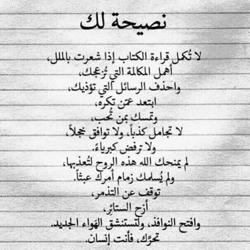 نصيحة لك
لا تُكمل قراءة الكتاب إذا شعرت بالملل،
أهمل المكالمة التي تُزعجك،
واحذف الرسائل التي تؤذيك،
ابتعد عمّن تكره،
وتمسك بمن تُحب،
لا تجامل كذباً، ولا توافق خجلاً،
ولا ترفض كبرياءً.
لم يمنحك الله هذه الروح لتُعذبها،
ولم يُسلمك زمام أمرك عبثاً.
توقف عن التذمر،
أزح الستائر،
وافتح النوافذ، ولتستنشق الهواء الجديد.
تحرّك، فأنت إنسان.